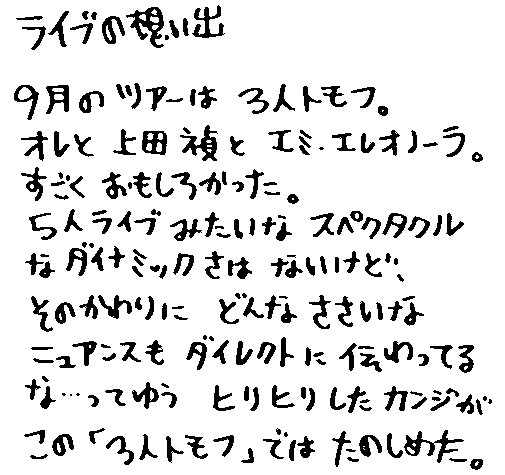 ライブの想い出
9月のツアーは 3人トモフ。
オレと 上田 禎と エミ・エレオノーラ。
すごく おもしろかった。
5人ライブ みたいな スペクタクル
な ダイナミックさは ないけど、
そのかわりに どんな ささいな
ニュアンスも ダイレクトに 伝わってる
な…ってゆう ヒリヒリした カンジが
この「3人トモフ」では たのしめた。